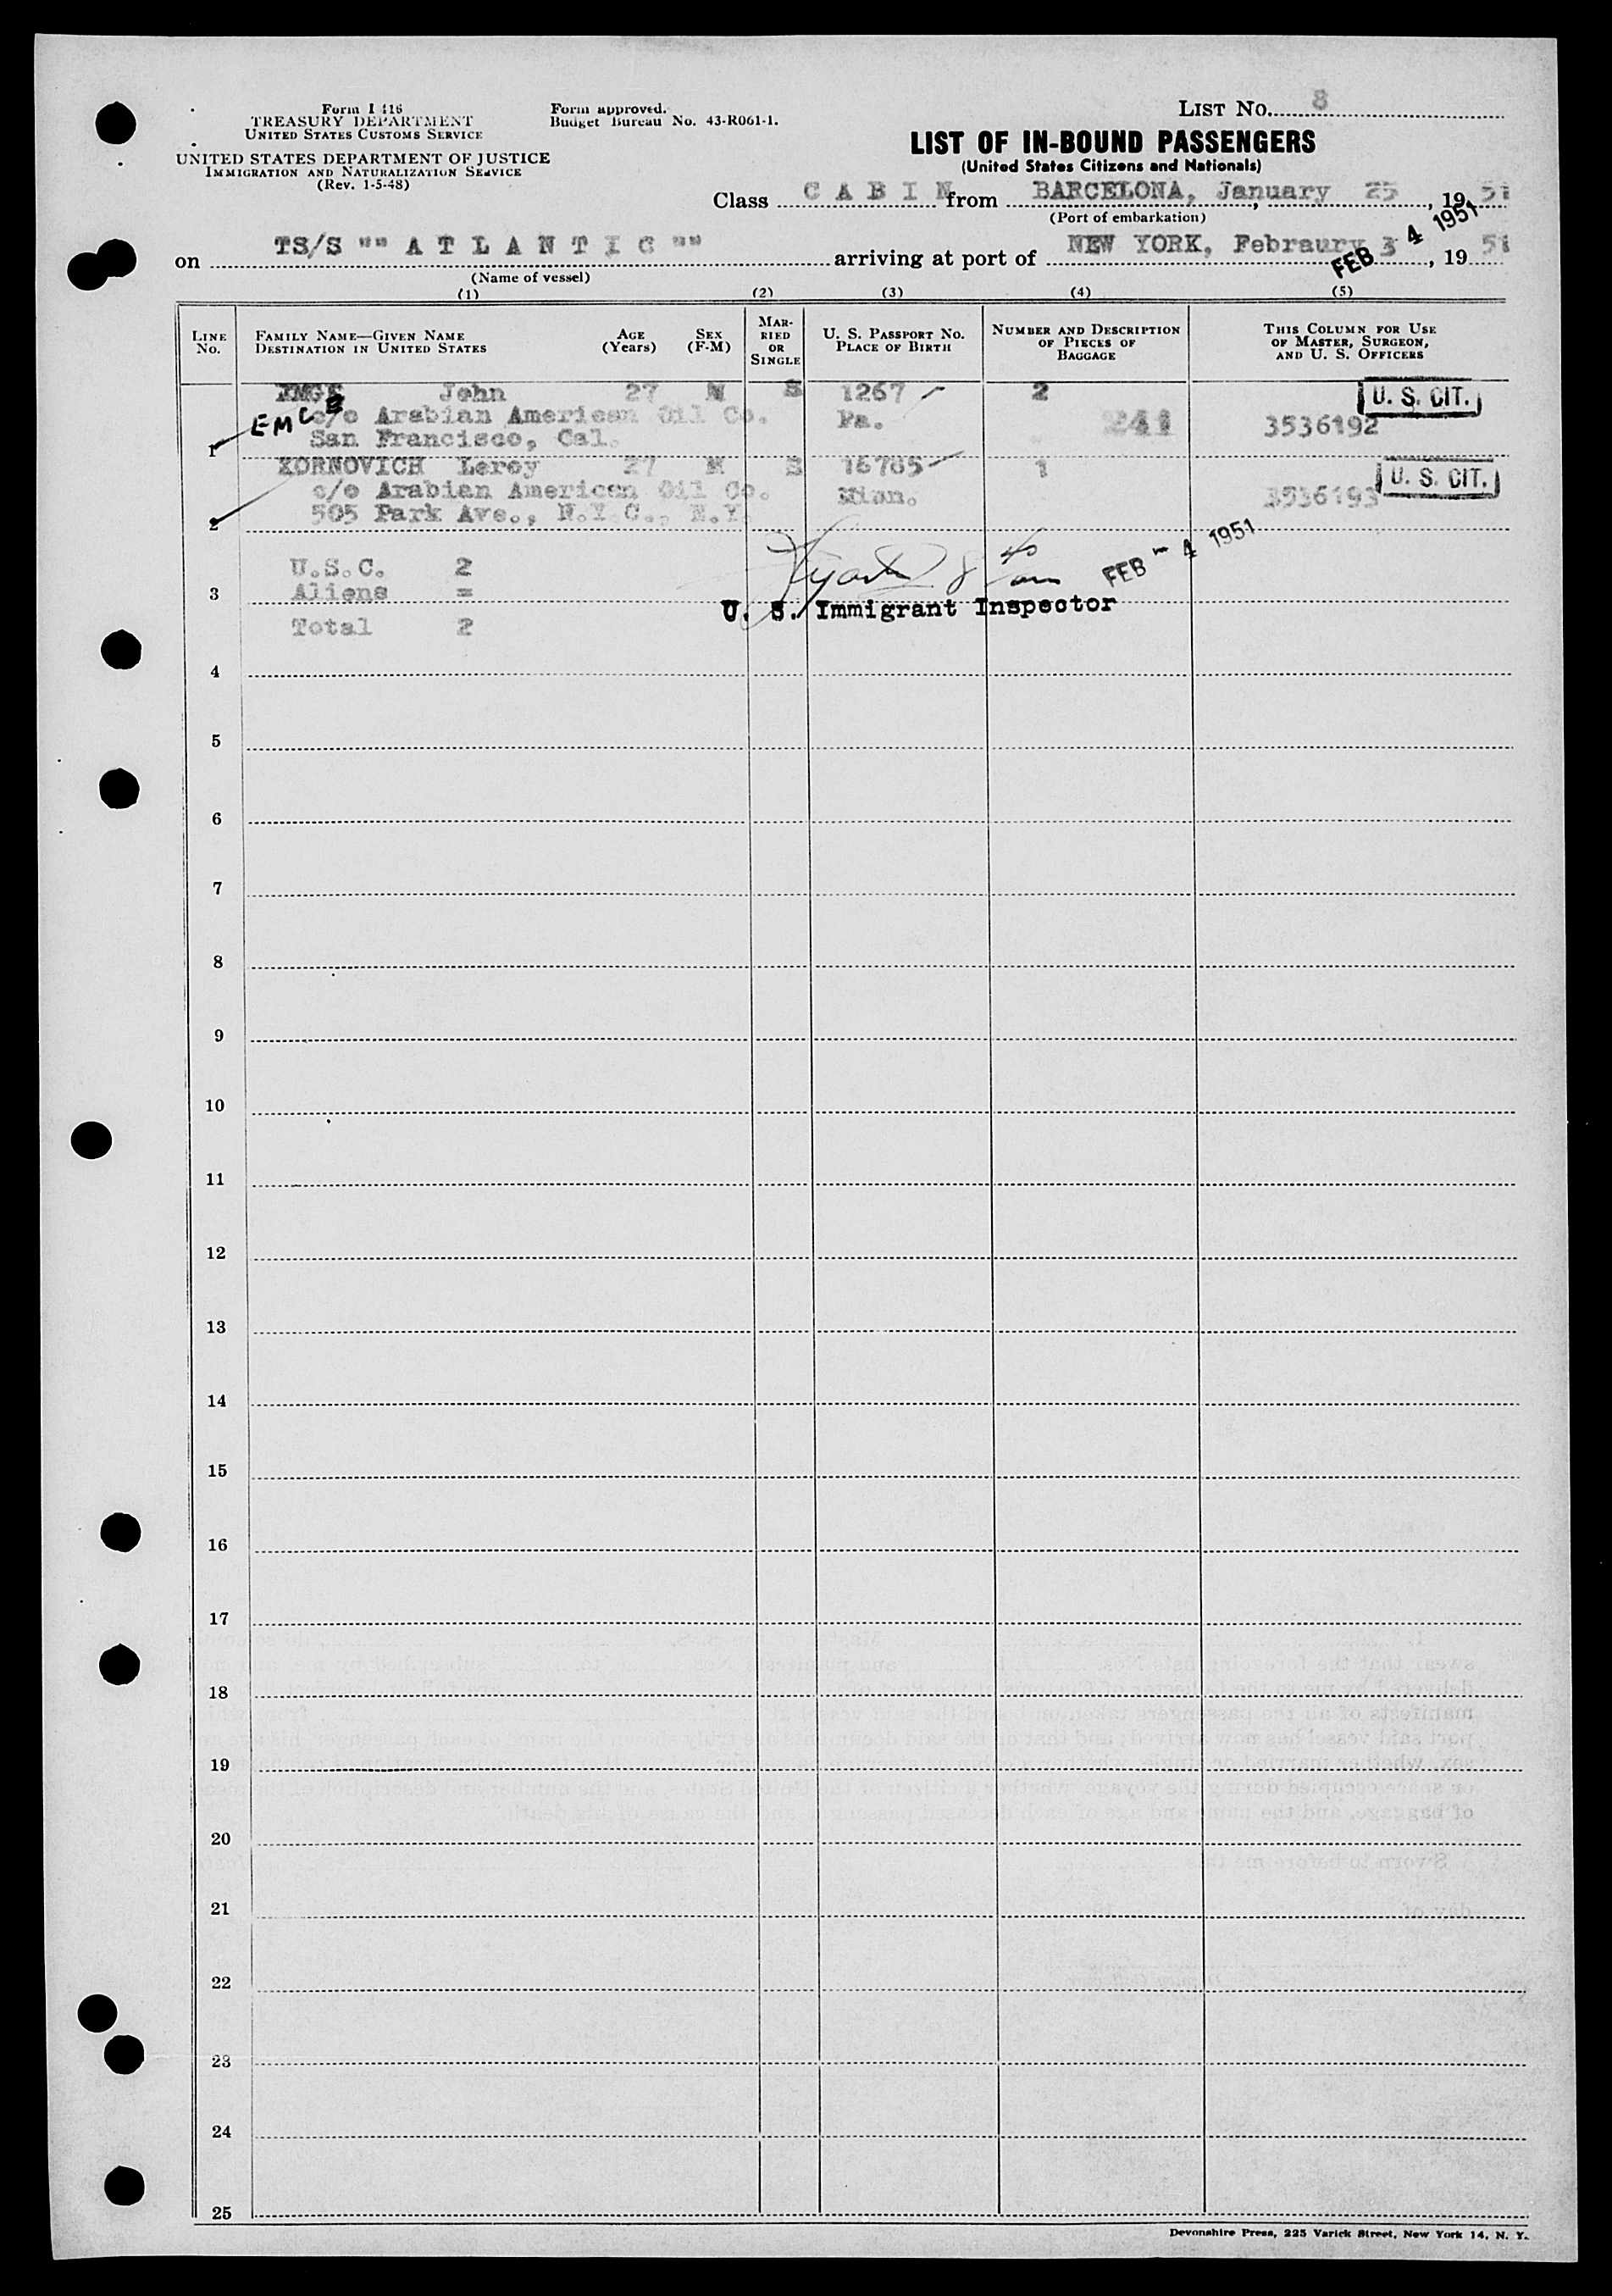 Form I 416
TREASURY DEPARTMENT
UNITED STATES CUSTOMS SERVICE
UNITED STATES DEPARTMENT OF JUSTICE
IMMIGRATION AND NATURALIZATION SERVICE
(Rev. 1-5-48)
Form approved.
Budget Bureau No. 43-R061-1.
LIST No. 8
LIST OF IN-BOUND PASSENGERS
(United States Citizens and Nationals)
Class C A B I N from BARCELONA, January 25, 1951
(Port of embarkation)
FEB 4 1951
on TS/S "" A T L A N T I C "" arriving at port of NEW YORK, Febraury 3, 1951
(Name of vessel)
(1) (2) (3) (4) (5)
LINE No. FAMILY NAME—GIVEN NAME DESTINATION IN UNITED STATES AGE (Years) SEX (F-M) MARRIED OR SINGLE U. S. PASSPORT No. PLACE OF BIRTH NUMBER AND DESCRIPTION OF PIECES OF BAGGAGE THIS COLUMN FOR USE OF MASTER, SURGEON, AND U. S. OFFICERS
John 27 M S 1267 2 U. S. CIT.
c/o Arabian American Oil Co. Pa. 241 3536192
1 San Francisco, Cal.
KORNOVICH Leroy 27 M S 16785 1 U. S. CIT.
c/o Arabian American Oil Co. 3536193
2 505 Park Ave., N.Y.C., N.Y.
U.S.C. 2 FEB - 4 1951
3 Aliens =
U. S. Immigrant Inspector
Total 2
4
5
6
7
8
9
10
11
12
13
14
15
16
17
18
19
20
21
22
23
24
25
Devonshire Press, 225 Varick Street, New York 14, N. Y.